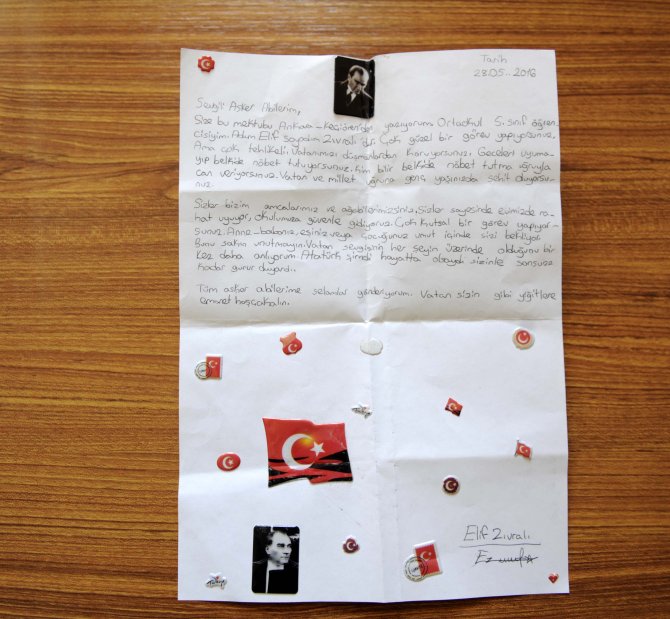 Tarih
23.05..2016
Sevgili Asker Abilerim,
Size bu mektubu Ankara-Keçiören'den yazıyorum Ortaokul 5. sınıf öğren
cisiyim. Adım Elif soyadım Zıvralı'dır. Çok güzel bir görev yapıyorsunuz.
Ama çok tehlikeli. Vatanımızı düşmanlardan koruyorsunuz. Geceleri uyuma
yıp belkide nöbet tutuyorsunuz. Kim bilir belkide nöbet tutma uğruyla
can veriyorsunuz. Vatan ve millet uğruna genç yaşınızda şehit oluyorsu
nuz.
Sizler bizim amcalarımız ve ağabeylerimizsiniz. Sizler sayesinde evimizde ra-
hat uyuyor, okulumuza güvenle gidiyoruz. Çok kutsal bir görev yapıyor
sunuz. Anne-babanız, eşiniz veya çocuğunuz umut içinde sizi bekliyor
Bunu sakın unutmayın. Vatan sevgisinin her şeyin üzerinde olduğunu bir
kez daha anlıyorum Atatürk şimdi hayatta olsaydı sizinle sonsuza
kadar gurur duyardı..
Tüm asker abilerime selamlar gönderiyorum. Vatan sizin gibi yiğitlere
emanet hoşçakalın.
Elif Zıvralı